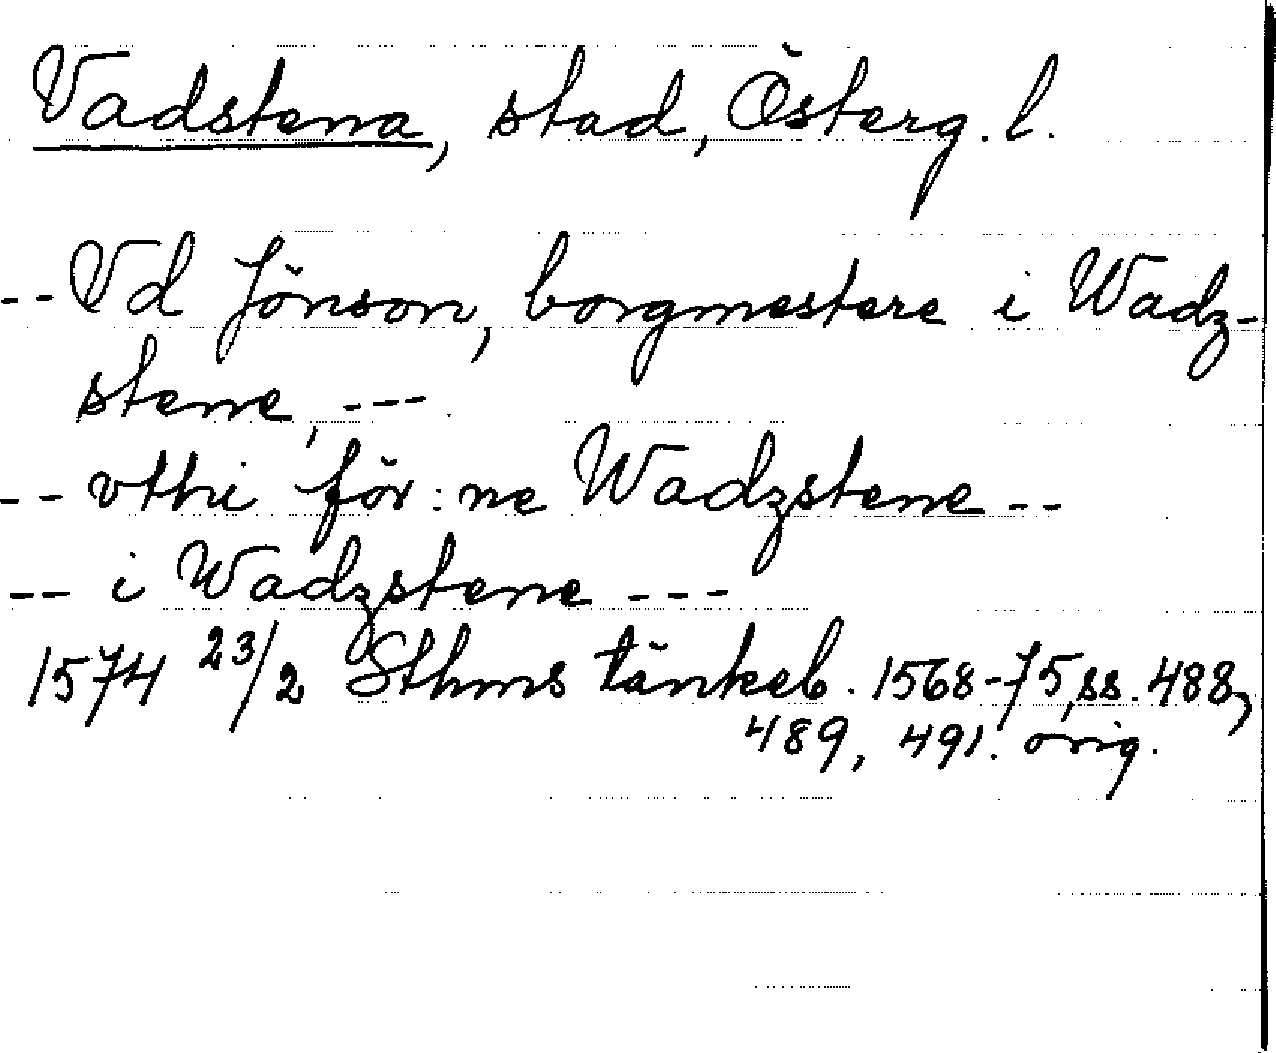 Vadstena, stad, Österg. l.
-- Vd Jönson, borgmestere i Wadz-
stene, ---
-- vthi för: ne Wadzstene --
-- i Wadzstene ---
1574 23/2 Sthms tänkeb. 1568-75, ss. 488,
489, 491. orig.